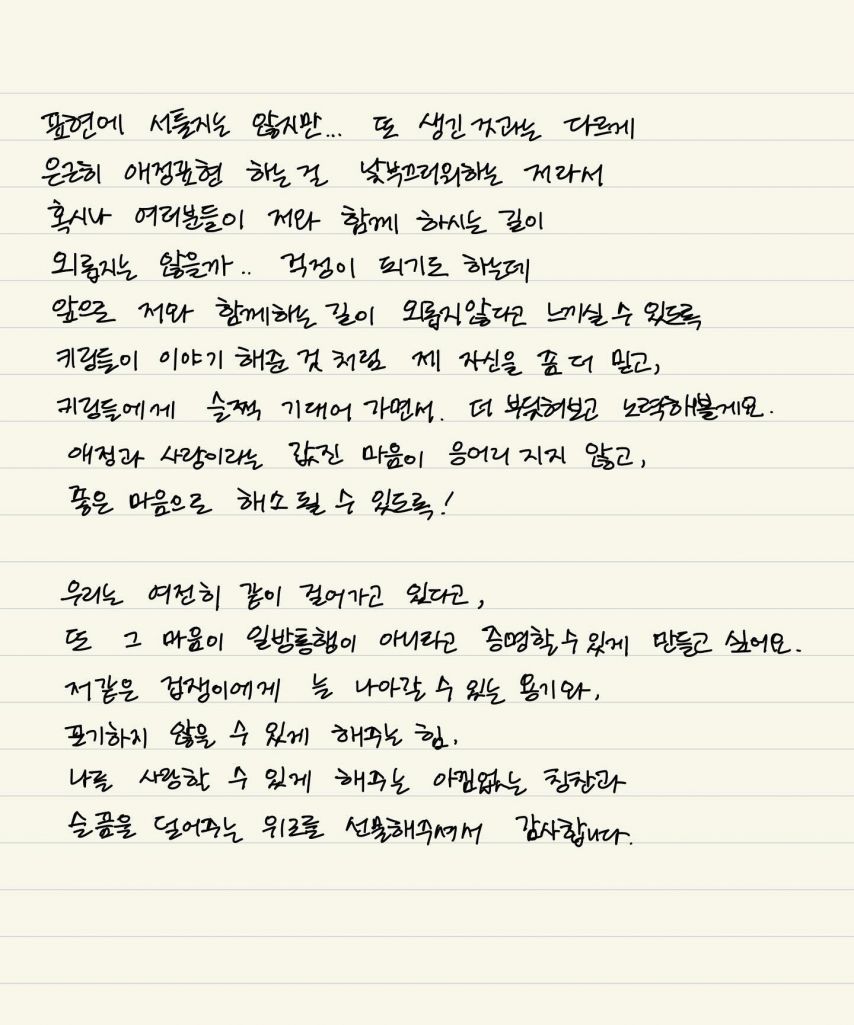 표현에 서툴지는 않지만... 또 생긴 것과는 다르게
은근히 애정표현 하는 걸 낯부끄러워하는 저라서
혹시나 여러분들이 저와 함께 하시는 길이
외롭지는 않을까.. 걱정이 되기도 하는데
앞으로 저와 함께하는 길이 외롭지않다고 느끼실 수 있도록
키링들이 이야기 해준 것 처럼 제 자신을 좀 더 믿고,
키링들에게 슬쩍 기대어 가면서. 더 부딪혀보고 노력해볼게요.
애정과 사랑이라는 값진 마음이 응어리 지지 않고,
좋은 마음으로 해소 될 수 있도록!
우리는 여전히 같이 걸어가고 있다고,
또 그 마음이 일방통행이 아니라고 증명할 수 있게 만들고 싶어요.
저같은 겁쟁이에게 늘 나아갈 수 있는 용기와,
포기하지 않을 수 있게 해주는 힘,
나를 사랑할 수 있게 해주는 아낌없는 칭찬과
슬픔을 덜어주는 위로를 선물해주셔서 감사합니다.